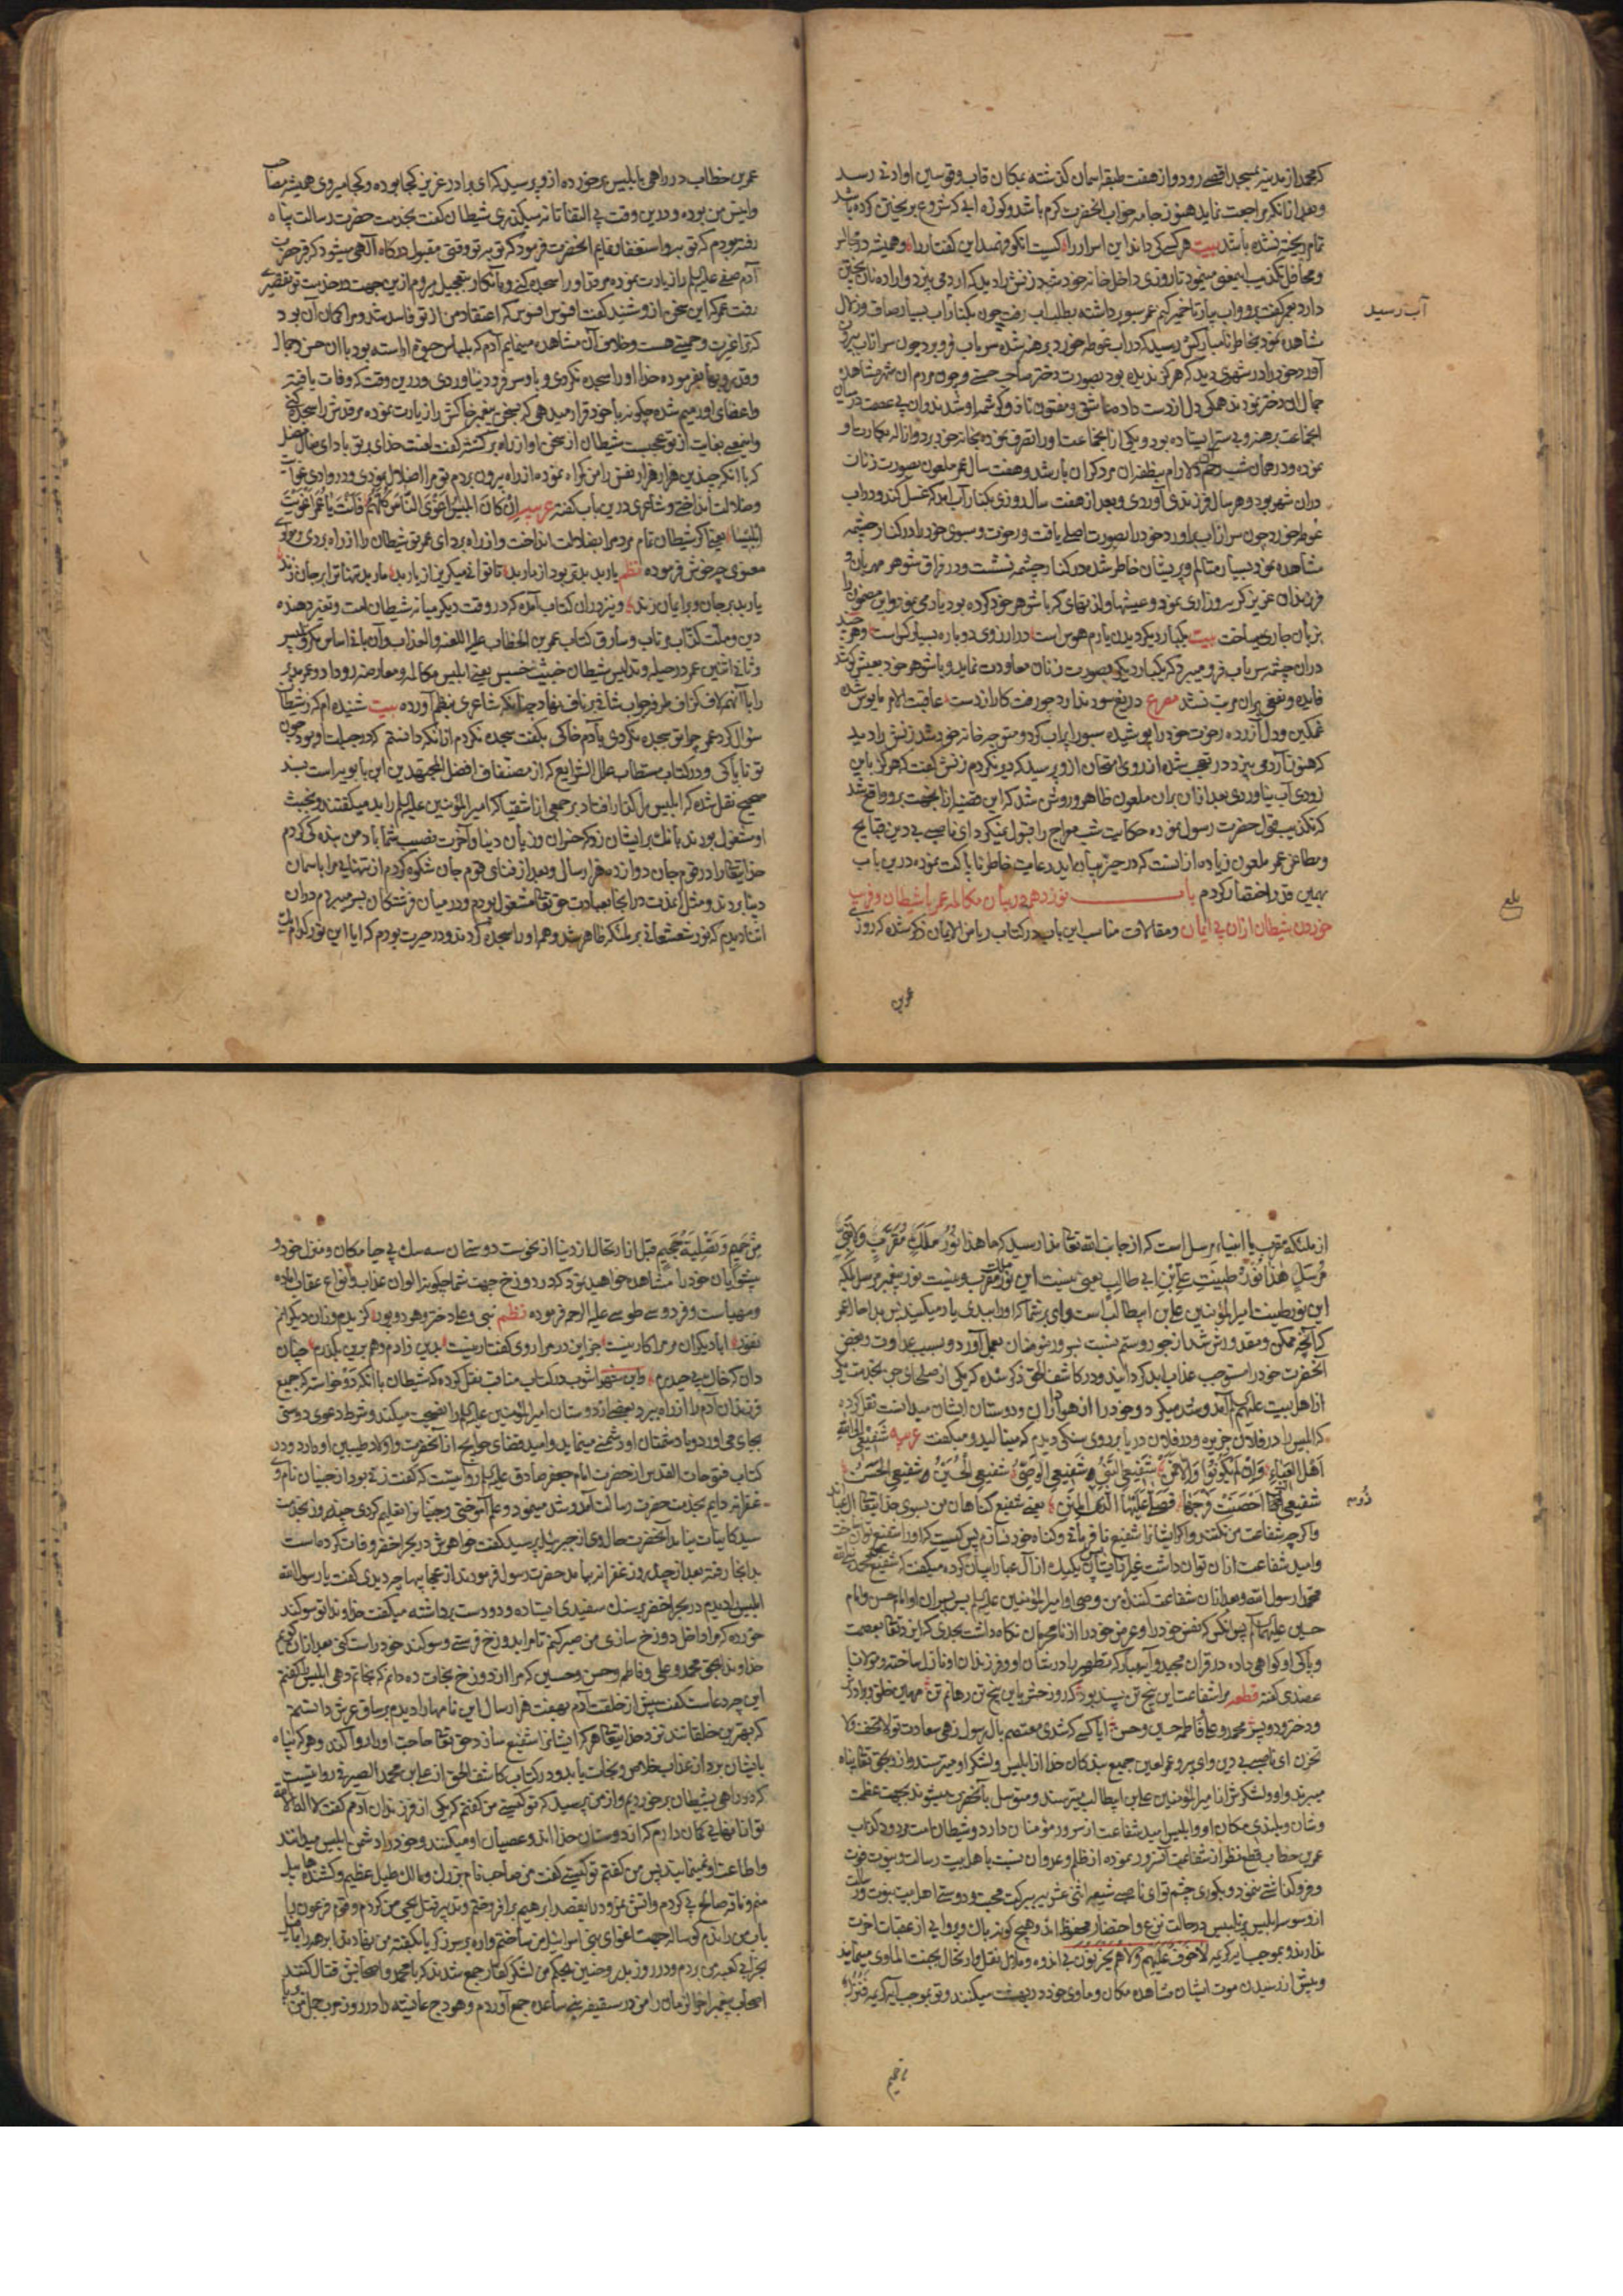 که محمد از مدینه بمسجد اقصی رود و از هفت طبقه اسمان کذشته بمکان قاب قوسین او ادنی رسد
و بعد از انکه مراجعت نماید هنوز جامه خواب انحضرت کرم باشد و کوزه ابی که شروع بریختن کرده باشد
تمام ریخته نشده باشد بیت هر کسی کی داند این اسرار را کیست انکو فهمد این کفتار را و همیشه در مجالس
و محافل تکذیب اینمعنی مینمود تا روزی داخل خانه خود شد زنش را دید که ارد می بیزد و اراده نان پختن
دارد بعمر کفت برو و اب بیار تا خمیر کنم عمر سبو برداشته بطلب اب رفت چون بکنار اب بسیار صاف و زلال
آب رسید
شاهده نمود بخاطر نامبارکش رسید که در اب غوطه خورد برهنه شده سر باب فرو برد چون سر از اب بیرون
آورد خود را در شهری دید که هرکز ندیده بود بصورت دختر صاحب حسنی و چون مردم ان شهر مشاهده
جمال ان دختر نمودند همکی دل از دست داده عاشق و مفتون ناز و کرشمه او شدند و ان بی عصمت در میان
انجماعت برهنه و بی ستر ایستاده بود و یکی از انجماعت او را تصرف نموده بخانه خود برد و ازاله بکارت او
نموده و در همان شب رحم دلارام بنطفه ان مرد کران بار شد و هفت سال عمر ملعون بصورت زنان
دران شهر بود و هر سال فرزندی آوردی و بعد از هفت سال روزی بکنار آب امد که غسل کند و در اب
غوطه خورد چون سر از اب براورد خود را بصورت اصلی یافت و رخوت و سبوی خود را در کنار چشمه
شاهده نمود بسیار متالم و پریشان خاطر شده در کنار چشمه نشست و در فراق شوهر مهربان و
فرزندان عزیز کریه و زاری نمود و عیشها و لذتهای که با شوهر خود کرده بود یاد می نمود و این مضمون را
بزبان جاری میساخت بیت یکبار دیکر دیدن یارم هوس است در ارزوی دوباره بسیار کس است و هر چند
دران چشمه سر باب فرو میبرد که یکبار دیکر بصورت زنان معاودت نماید و با شوهر خود بعیش کوشد
فایده و نفعی بران مرتب نشد مصرع دریغ سود ندارد چو رفت کار از دست عاقبت الامر مایوس شده
غمکین و دل آزرده رخوت خود را پوشیده سبو را پر اب کرد و متوجه خانه خود شد زنش را دید
که هنوز آرد می بیزد در تعجب شده از روی امتحان از و پرسید که دیر نکردم زنش کفت که هرکز باین
زودی آب نیاوردی بعد ازان بران ملعون ظاهر و روشن شد که این قضیه از انجهت برو واقع شد
که تکذیب قول حضرت رسول نموده حکایت شب معراج را قبول نمیکرد ای ناصبی بی دین قبایح
و مطاعن عمر ملعون زیاده از انست که در حیز بیان اید رعایت خاطر ناپاکت نموده درین باب
بهمین قدر اختصار کردم باب نوزدهم در بیان مکالمه عمر با شیطان و فریب
خوردن شیطان ازان بی ایمان و مقالات مناسب این باب در کتاب ریاض الایمان ذکر شده که روزی
بلغ
عمر بن
عمر بن خطاب در راهی بابلیس بر خورده از و پرسید که ای برادر عزیز کجا بوده و کجا میروی همیشه مصاحب
و انیس من بوده و درین وقت بی التفاتانه میکذری شیطان کفت بخدمت حضرت رسالت پناه
رفته بودم که توبه و استغفار نمایم انحضرت فرمود که توبه تو وقتی مقبول درکاه آلهی میشود که قبر حضرت
آدم صفی علیه السلام را زیارت نموده مرقد او را سجده کنی و بآنکار بتعجیل میروم ازین جهت در خدمت تو تقصیری
رفت عمر که این سخن از و شنید کفت افسوس افسوس که اعتقاد من از تو فاسد شد و مرا کمان آن بود
که ترا غیرت و حمیتی هست و خلاف آن مشاهده مینمایم آدم که بلباس حیوة اراسته بود با ان حسن و جمال
و قدر و بها بفرموده خدا او را سجده نکردی و باو سر فرود نیاوردی و درین وقت که وفات یافته
و اعضای او رمیم شده چکونه با خود قرار میدهی که بسخن پیغمبر خاکش را زیارت نموده مرقدش را سجده کنی
و اینمعنی بغایت از تو عجیبست شیطان از سخن او از راه برکشته کفت لعنت خدای بر تو باد ای ضال مضل
که با انکه چندین هزار هزار نفس را من کمراه نموده از راه بیرون بردم تو مرا اضلال نمودی و در وادی غوایت
و ضلالت انداختی و شاعری درین باب کفته عربیه ان کان ابلیس اغوی الناس کلهم فانت یا عمر اغویت
ابلیسا یعنی اکر شیطان تمام مردم را بضلالت انداخت و از راه برد ای عمر تو شیطان را از راه بردی مولوی
معنوی چه خوش فرموده نظم یار بد بدتر بود از مار بد تا توانی میکریز از یار بد مار بد تنها ترا بر جان زند
یار بد بر جان و بر ایمان زند و نیز دران کتاب آمده که در وقت دیکر میانه شیطان امت و تغیر دهنده
دین و ملت کذاب و مرتاب و سارق کتاب عمر بن الخطاب علیه اللعنه و العذاب و آن بانی اساس مکر و تلبیس
و ثانی اثنین عمر در حیله و تدلیس شیطان خبیث خسیس یعنی ابلیس مکالمه و معارضه رو داد و عمر بد سیر
را با آنهمه لاف کزاف طرفه جواب شافی بر ناف نهاد چنانکه شاعری بنظم آورده بیت شنیده ام که ز شیطان
سوال کرد عمر چرا تو سجده نکردی بآدم خاکی بکفت سجده نکردم ازانکه دانستم که در جبلت او بود چون
تو ناپاکی و در کتاب مستطاب علل الشرایع که از مصنفات افضل المجتهدین ابن بابویه است بسند
صحیح نقل شده که ابلیس را کذار افتاد بر جمعی از اشقیا که امیر المؤمنین علیه السلام را بد میکفتند و بخبث
او مشغول بودند بانک بر ایشان زد که خسران و زیان دنیا و آخرت نصیب شما باد من بندکی کردم
خدایتعالی را در قوم جان دوازده هزار سال و بعد از فنای قوم جان شکوه کردم از تنهائی مرا باسمان
دنیا بردند و مثل ان مدت در انجا بعبادت حق تعالی مشغول بودم و در میان فرشتکان بسر میبردم دران
اثنا دیدم که نور شعشعانی بر ملئکه ظاهر شد و همه او را سجده کردند و در حیرت بودم که ایا این نور کدام یک
از ملئکه مقرب یا انبیاء مرسل است که از جانب الله تعالی ندا رسید که ما هذا نور ملک مقرب ولا نبی
مرسل هذا نور طینت علی بن ابی طالب یعنی نیست این نور ملک مقرب و نیست نور پیغمبر مرسل بلکه
این نور طینت امیر المؤمنین علی بن ابیطالب است وای بر شما که او را ببدی یاد میکنید پس بدا حال عمر
که آنچه ممکن و مقدورش شد از جور و ستم نسبت بسرور مومنان بعمل آورد و بسبب عداوت و بغض
آنحضرت خود را مستوجب عذاب ابد کردانید و در کاشف الحق ذکر شده که یکی از صلحای جن بخدمت یکی
از اهل بیت علیهم السلام آمد و شد میکرد و خود را از هواداران و دوستان ایشان میدانست نقل کرده
که ابلیس را در فلان جزیره و در فلان دریا بر روی سنکی دیدم که مینالید و میکفت عربیه شفیعی الی الله
اهل العباء وان لم یکونوا والا فمن شفیعی النبی شفیعی الوصی شفیعی الحسین شفیعی الحسن
شفیعی التی احصنت فرجها فصلی علیها اله المنن یعنی شفیع کناهان من بسوی خدایتعالی ال عبا اند
دوم
و اکر چه شفاعت من نکنند و اکر ایشان شفیع نافرمانی و کناه خود نسازم پس کیست که او را شفیع توان ساخت
و امید شفاعت ازان توان داشت غیر از ایشان پس یکیک از آل عبا را بیان کرده میکفت که شفیع محمد
محمد رسول الله و بعد ازان شفاعت کننده من وصی او امیر المؤمنین علیه السلام پس پسران او امام حسن و امام
حسین علیهما السلام پس انکس که نفس خود را و عرض خود را از نامحرمان نکاه داشت بحدی که ایزد تعالی بعصمت
و پاکی او کواهی داده در قران مجید و آیه مبارکه تطهیر را در شان او و فرزندان او نازل ساخته و مولانا
عضدی کفته قطعه مرا شفاعت این پنج تن بسنده بود که روز حشر باین پنج تن رهانم تن مهین خلق و برادرش
و دختر و دو پسر محمد و علی فاطمه حسین و حسن ایا کسی که شدی معتصم بآل رسول زهی سعادت تو لا تخف ولا
تحزن ای ناصبی بی دین وای پیرو عمر لعین جمیع بندکان خدا از ابلیس و لشکر او میترسند و از و بحق تعالی پناه
میبرند و او و لشکرش از امیر المؤمنین علی بن ابیطالب میترسند و متوسل بآنحضرت میشوند بجهت عظمت
و شان و بلندی مکان او و ابلیس امید شفاعت از سرور مؤمنان دارد و شیطان امت مردود کذاب
عمر بن خطاب قطع نظر از شفاعت آنسرور نموده از ظلم و عدوان نسبت باهل بیت رسالت و نبوت فوت
و فرو کذاشتی ننمود و بکوری چشم تو ای ناصبی شیعه اثنی عشریه ببرکت محبت و دوستی اهل بیت نبوت و رسالت
از وسوسه ابلیس پر تلبیس در حالت نزع و احتضار محفوظ اند و هیچ کونه باک و پروائی از عقبات اخرت
ندارند و بموجب آیه کریمه لا خوف علیهم ولا هم یحزنون بی اندوه و ملال نقل و ارتحال بجنت الماوی مینمایند
و پیش از رسیدن موت ایشان مشاهده مکان و ماوی خود در بهشت میکنند و تو بموجب آیه کریمه فنزل
من حمیم
من حمیم وتصلیة جحیم قبل از ارتحال از دنیا از نحوست دوستان سه سک بی حیا مکان و منزل خود و
پیشوایان خود را مشاهده خواهید نمود که در دوزخ جهت شما چکونه الوان عذاب و انواع عقاب آماده
و مهیاست و فردوسی طوسی علیه الرحمه فرموده نظم نبی و علی دختر و هر دو پور کزیدم وزان دیکرانم
نفور ابا دیکران مر مرا کار نیست جز این در مرا روی کفتار نیست بدین زادم و هم برین بکذرم چنان
دان که خاک پی حیدرم و ابن شهر اشوب در کتاب مناقب نقل کرده که شیطان با انکه خواست که جمیع
فرزندان آدم را از راه ببرد بعضی از دوستان امیر المؤمنین علیه السلام را نصیحت میکند و شرط دعوی دوستی
بجای می اورد و با دشمنان او دشمنی مینماید و امید قضای حوایج از آنحضرت و اولاد طیبین او دارد و در
کتاب فتوحات القدس از حضرت امام جعفر صادق علیه السلام روایتست که کفت زنی بود از جنیان نام وی
عفرا نزد دایم بخدمت حضرت رسالت آمد و شد مینمود و علم آموختی و جنیان را تعلیم کردی چند روز بخدمت
سید کاینات نیامد آنحضرت حال وی از جبرئیل پرسید کفت خواهرش در بحر اخضر وفات کرد ماست
بدانجا رفته بعد از چند روز عفرا نزد بیامد حضرت رسول فرمودند از عجایبها چه دیدی کفت یا رسول الله
ابلیس را دیدم در بحر اخضر بر سنک سفیدی ایستاده و دو دست برداشته میکفت خداوندا تو سوکند
خورده که مرا داخل دوزخ سازی من صبر کنم تا مرا بدوزخ فرستی و سوکند خود راست کنی بعد ازان کویم
خداوندا بحق محمد و علی و فاطمه و حسن و حسین که مرا از دوزخ نجات ده دانم که نجاتم دهی ابلیس را کفتم
این چه دعاست کفت پیش از خلقت آدم بهفت هزار سال این نامها را دیدم بر ساق عرش دانستم
که بهترین خلقانند نزد خدایتعالی هر که ایشان را شفیع سازد حق تعالی حاجت او را روا کند و هر که پناه
بایشان برد از عذاب خلاص و نجات یابد و در کتاب کاشف الحق از علی بن محمد الصیرفی روایتست
که در راهی بشیطان بر خوردیم و از من پرسید که تو کیستی من کفتم که یکی از فرزندان آدم کفت لا اله الا الله
تو از انهائی کمان دارم که از دوستان خدا اند و عصیان او میکنند و خود را دشمن ابلیس میدانند
و اطاعت او مینمایند پس من کفتم تو کیستی کفت من صاحب نام بزرک و مالک طبل عظیم و کشنده هابیل
منم و ناقه صالح پی کردم و اتش نمرود را بقصد ابراهیم برافروختم و تدبیر قتل یحیی من کردم و قوم فرعون را
باب من راندم کوساله جهت اغوای بنی اسرائیل من ساختم و اره بر سر زکریا بکفته من نهادند ابرهه را با فیل
بخرابی کعبه من بردم و در روز بدر و حنین بحکم من لشکر کفار جمع شدند که با محمد و اصحابش قتال کنند
اصحاب پیغمبر اخر الزمان را من در سقیفه بنی ساعده جمع آوردم و هودج عایشه را در روز حرب جمل من